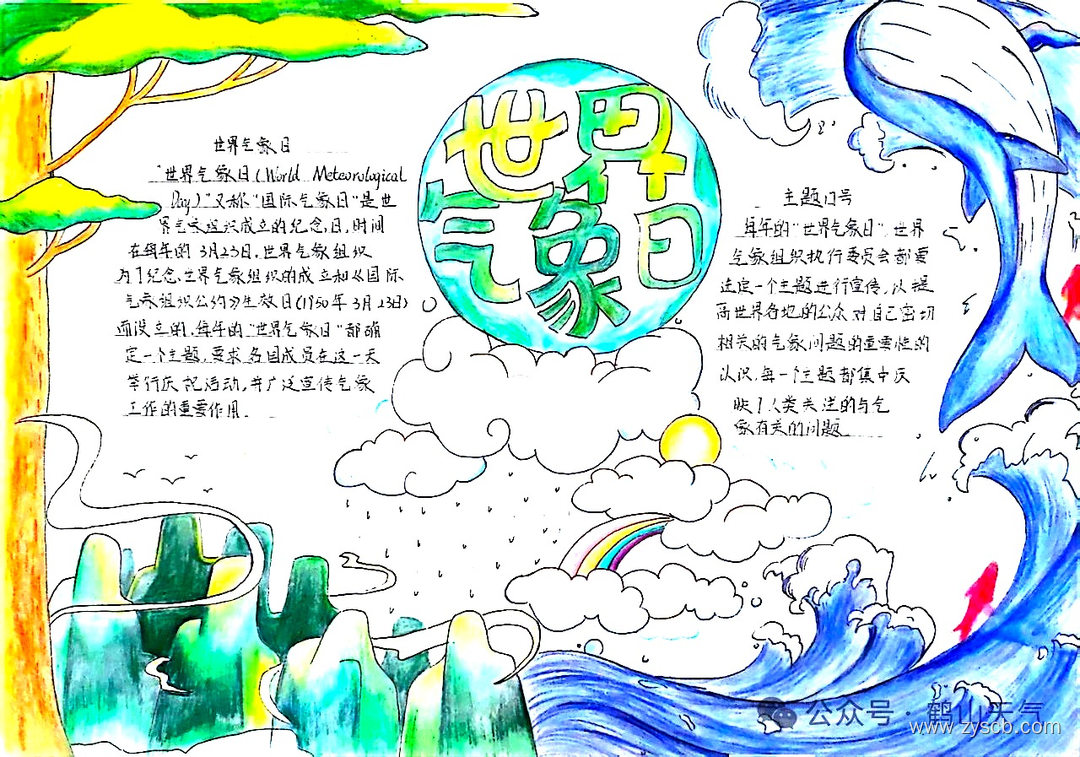 世界
气象日
世界气象日
"世界气象日(World Meteorological
Day)"又称"国际气象日"是世
界气象组织成立的纪念日,时间
在每年的3月23日,世界气象组织
为了纪念世界气象组织的成立和《国际
气象组织公约》生效日(1950年3月23日)
而设立的,每年的"世界气象日"都确
定一个主题,要求各国成员在这一天
举行庆祝活动,并广泛宣传气象
工作的重要作用.
主题口号
每年的"世界气象日",世界
气象组织执行委员会都要
选定一个主题进行宣传,以提
高世界各地的公众对自己密切
相关的气象问题的重要性的
认识,每一个主题都集中反
映了人类关注的与气
象有关的问题
公众号·鹤山天气
www.zyscb.com